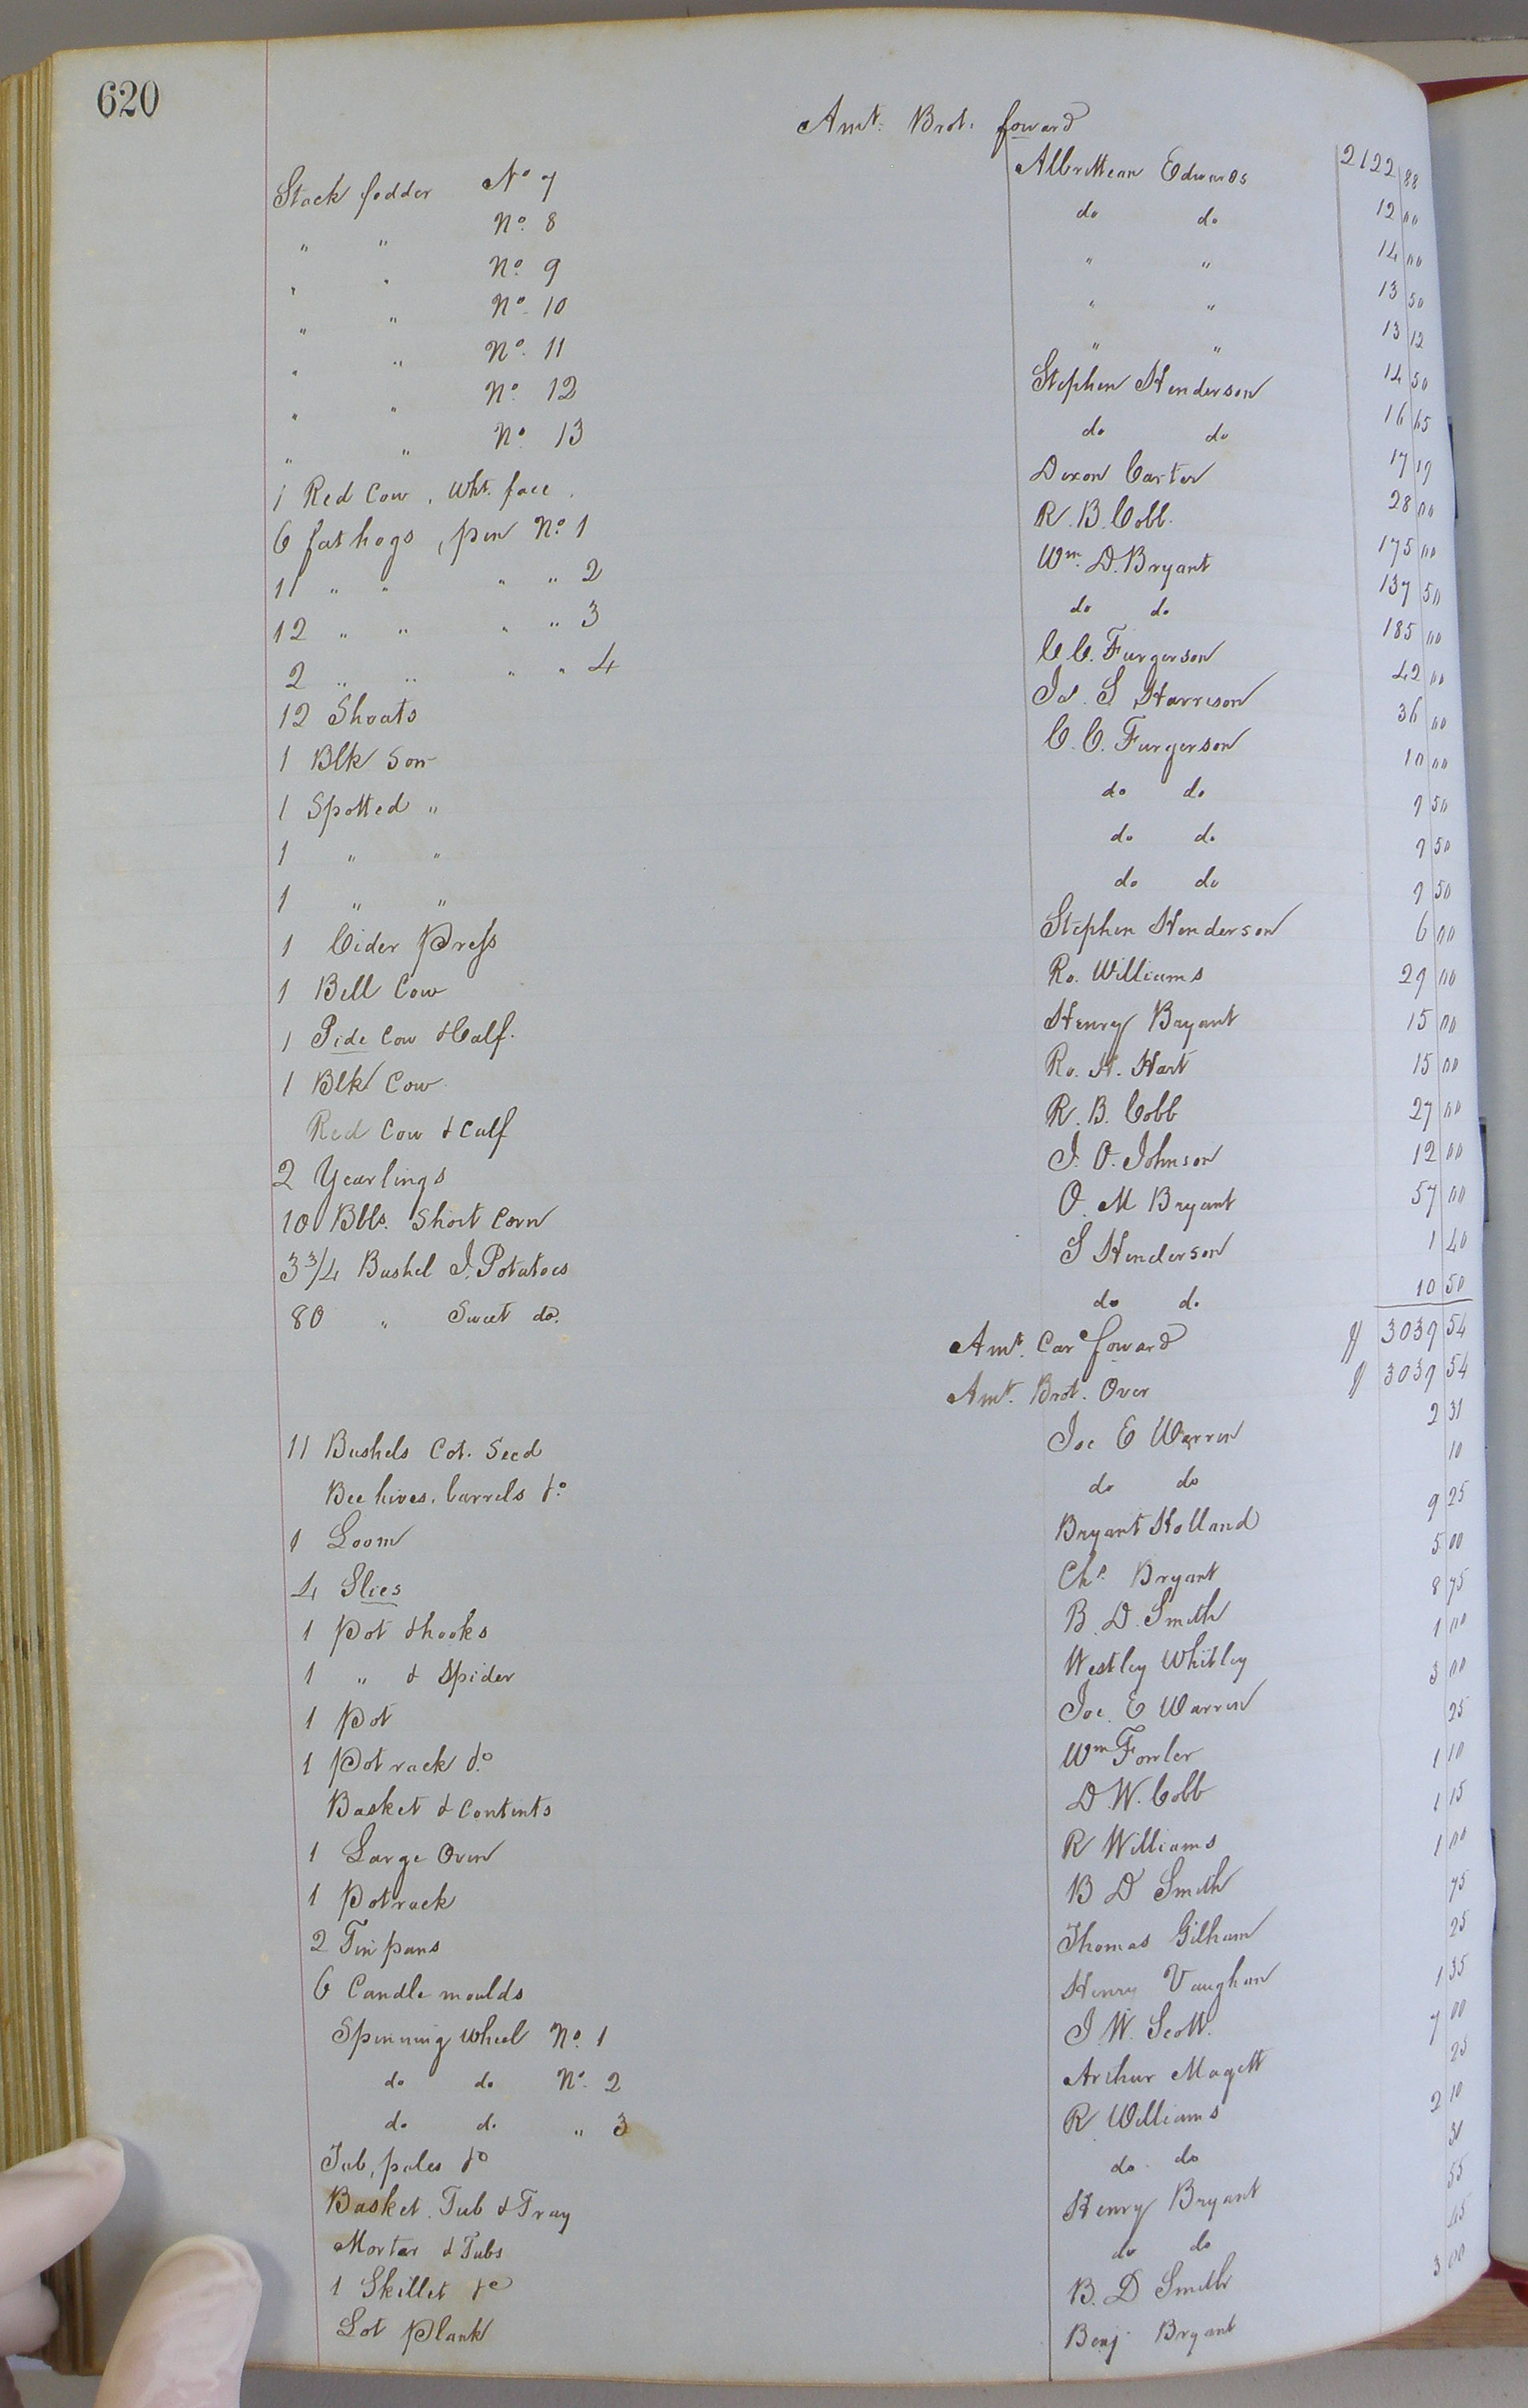 620
Amt. Brot. foward 2122 88
Stack fodder No 7 Albrittean Edwards 12 00
" " No. 8 do do 14 00
" " No. 9 " " 13 50
" " No. 10 " " 13 12
" " No. 11 " " 14 50
" " No. 12 Stephen Henderson 16 65
" " No. 13 do do 17 19
1 Red Cow, Wht. face. Dixon Carter 28 00
6 fat hogs, pen No. 1 R. B. Cobb. 175 00
11 " " " " 2 Wm. D. Bryant 137 50
12 " " " " 3 do do 185 00
2 " " " " 4 C. C. Furgerson 42 00
12 Shoats Jas. S Harrison 36 00
1 Blk Sow C. C. Furgerson 10 00
1 Spotted " do do 9 50
1 " " do do 9 50
1 " " do do 9 50
1 Cider Press Stephen Henderson 6 00
1 Bell Cow Ro. Williams 29 00
1 Pide Cow & Calf. Henry Bryant 15 00
1 Blk Cow Ro. H. Hart 15 00
Red Cow & Calf R. B. Cobb 27 00
2 Yearlings J. O. Johnson 12 00
10 Bbls. Short Corn O. M Bryant 57 00
3 3/4 Bushel I. Potatoes S Henderson 1 40
80 " Sweet do. do do 10 50
Amt. Car foward $ 3039 54
Amt. Brot. Over $ 3039 54
11 Bushels Cot. Seed Joe E Warren 2 31
Bee hives, barrels &c do do 10
1 Loom Bryant Holland 9 25
4 Slies Chs. Bryant 5 00
1 Pot & hooks B. D. Smith 8 75
1 " & Spider Westley Whitley 1 00
1 Pot Joe. E Warren 3 00
1 Pot rack &c Wm Fowler 25
Basket & Contents D. W. Cobb 1 10
1 Large Oven R Williams 1 15
1 Potrack B D Smith 1 00
2 Tin pans Thomas Gilham 75
6 Candle moulds Henry Vaughan 25
Spinning Wheel No. 1 J W. Scott. 1 35
do do No. 2 Arthur Magett 7 00
do do " 3 R Williams 25
Tub, pales &c do do 2 10
Basket. Tub & Tray Henry Bryant 30
Mortar & Tubs do do 55
1 Skillet &c B. D Smith 45
Lot Plank Benj. Bryant 3 00